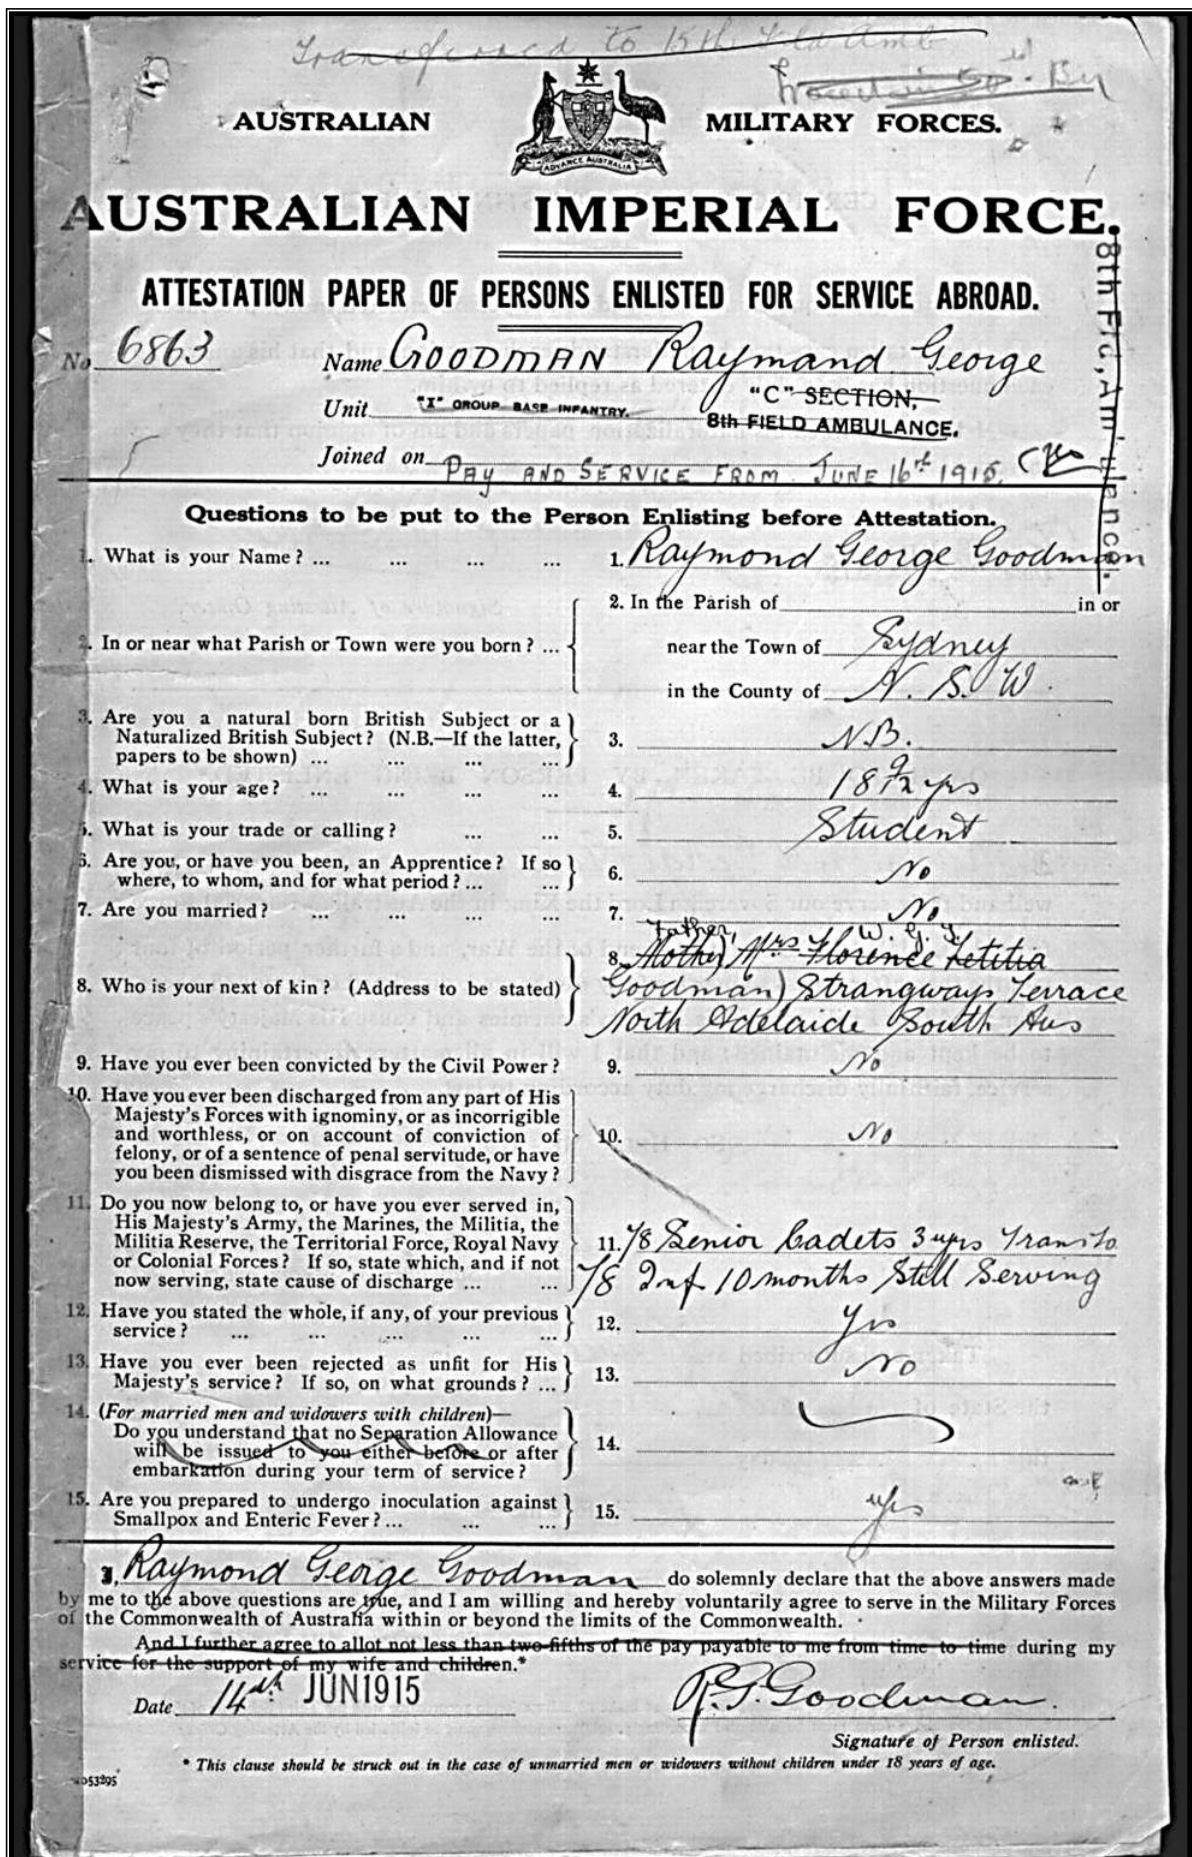 Transferred to 15th Fld Amb
AUSTRALIAN MILITARY FORCES.
ADVANCE AUSTRALIA
AUSTRALIAN IMPERIAL FORCE.
8th Fld, Ambulance.
ATTESTATION PAPER OF PERSONS ENLISTED FOR SERVICE ABROAD.
No 6863 Name GOODMAN Raymand George
Unit "I" GROUP BASE INFANTRY. "C" SECTION,
8th FIELD AMBULANCE.
Joined on PAY AND SERVICE FROM JUNE 16th 1915.
Questions to be put to the Person Enlisting before Attestation.
1. What is your Name? ... ... ... ... 1. Raymond George Goodman
2. In or near what Parish or Town were you born? ... 2. In the Parish of in or
near the Town of Sydney
in the County of N. S. W.
3. Are you a natural born British Subject or a
Naturalized British Subject? (N.B.—If the latter, 3. N.B.
papers to be shown) ... ... ... ...
4. What is your age? ... ... ... ... 4. 18 9/12 yrs
5. What is your trade or calling? ... ... 5. Student
6. Are you, or have you been, an Apprentice? If so
where, to whom, and for what period? ... ... 6. No
7. Are you married? ... ... ... ... 7. No
Father, W. G. T.
8. Mother, Mrs Florence Letitia
8. Who is your next of kin? (Address to be stated) Goodman) Strangways Terrace
North Adelaide South Aus
9. Have you ever been convicted by the Civil Power? 9. No
10. Have you ever been discharged from any part of His
Majesty's Forces with ignominy, or as incorrigible
and worthless, or on account of conviction of 10. No
felony, or of a sentence of penal servitude, or have
you been dismissed with disgrace from the Navy?
11. Do you now belong to, or have you ever served in,
His Majesty's Army, the Marines, the Militia, the
Militia Reserve, the Territorial Force, Royal Navy 11. 78 Senior Cadets 3 yrs Trans to
or Colonial Forces? If so, state which, and if not
now serving, state cause of discharge ... ... 78 Inf 10 months Still Serving
12. Have you stated the whole, if any, of your previous
service? ... ... ... ... ... 12. Yes
13. Have you ever been rejected as unfit for His
Majesty's service? If so, on what grounds? ... 13. No
14. (For married men and widowers with children)—
Do you understand that no Separation Allowance
will be issued to you either before or after 14.
embarkation during your term of service?
15. Are you prepared to undergo inoculation against
Smallpox and Enteric Fever? ... ... ... 15. Yes
I, Raymond George Goodman do solemnly declare that the above answers made
by me to the above questions are true, and I am willing and hereby voluntarily agree to serve in the Military Forces
of the Commonwealth of Australia within or beyond the limits of the Commonwealth.
And I further agree to allot not less than two-fifths of the pay payable to me from time to time during my
service for the support of my wife and children.*
Date 14th JUN 1915 R. G. Goodman.
Signature of Person enlisted.
* This clause should be struck out in the case of unmarried men or widowers without children under 18 years of age.